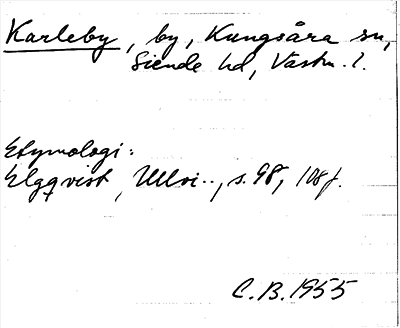 Karleby, by, Kungsåra sn,
Siende hd, Västm. l.
Etymologi:
Elgqvist, Ullvi.., s. 98, 108f.
C.B. 1955